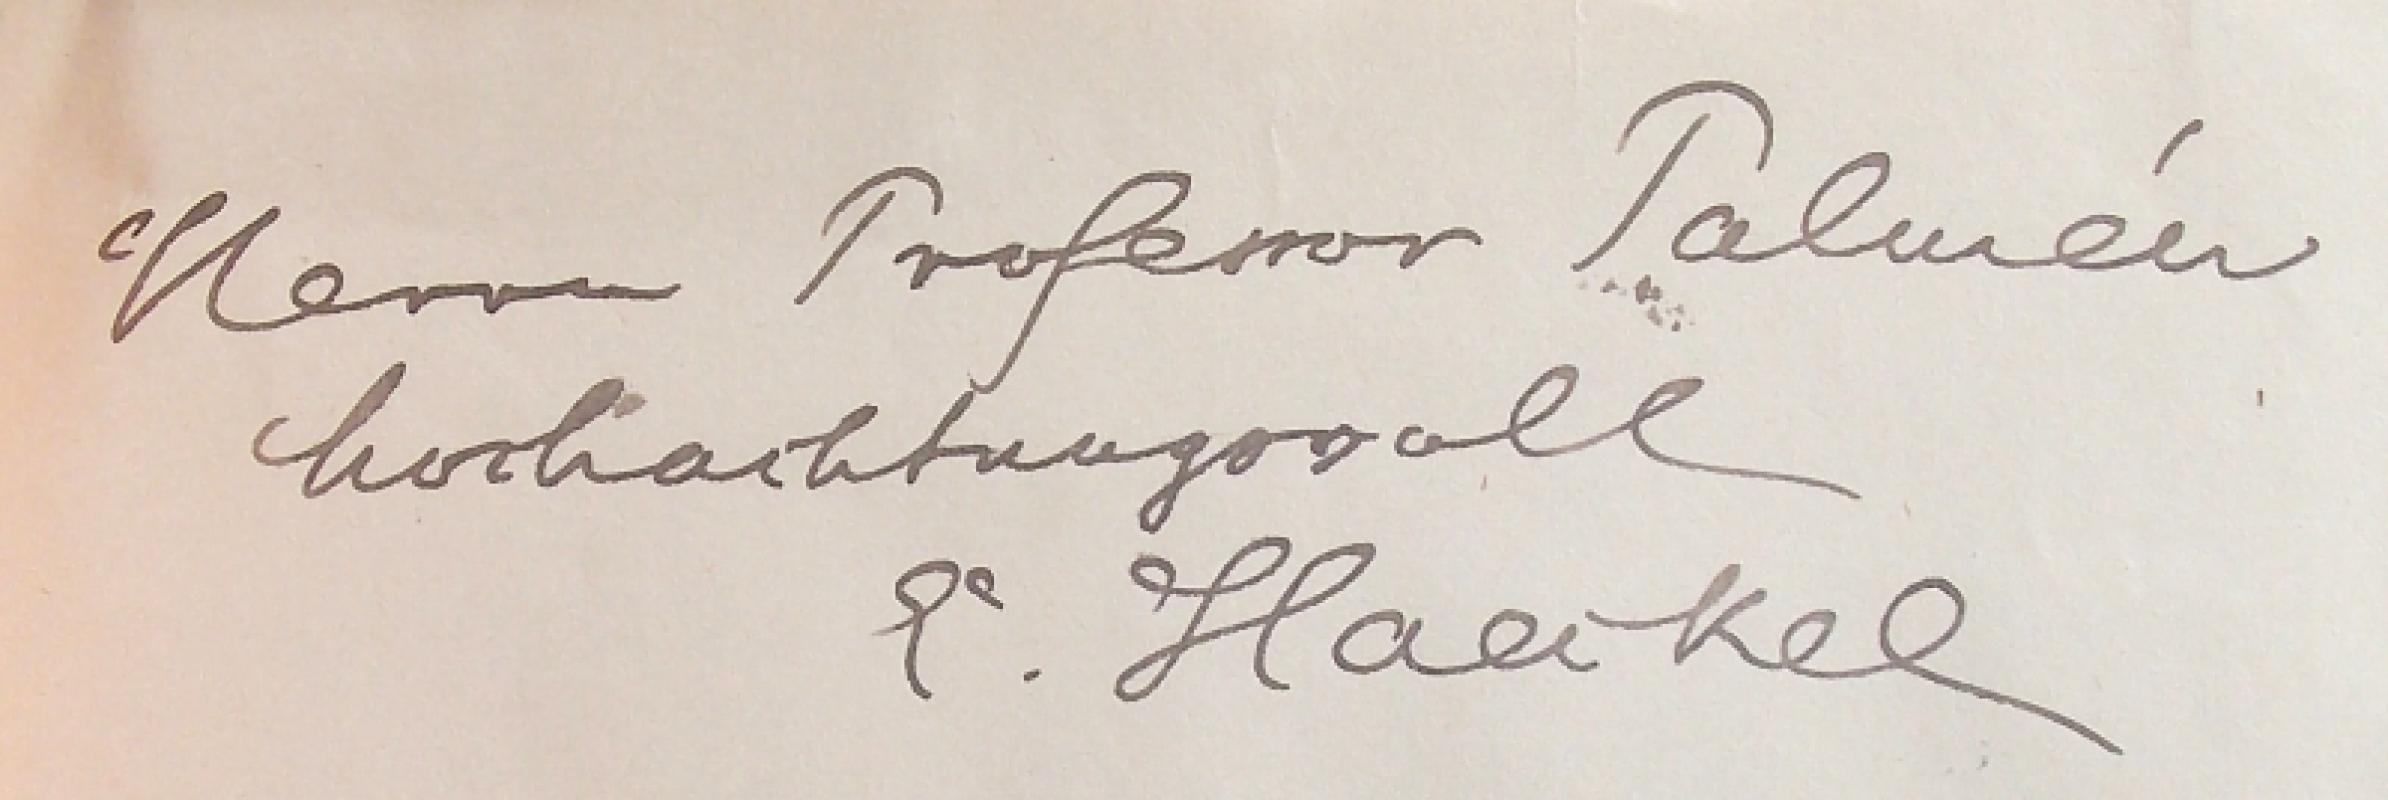 Herrn Professor Palmén
hochachtungsvoll
E. Haeckel